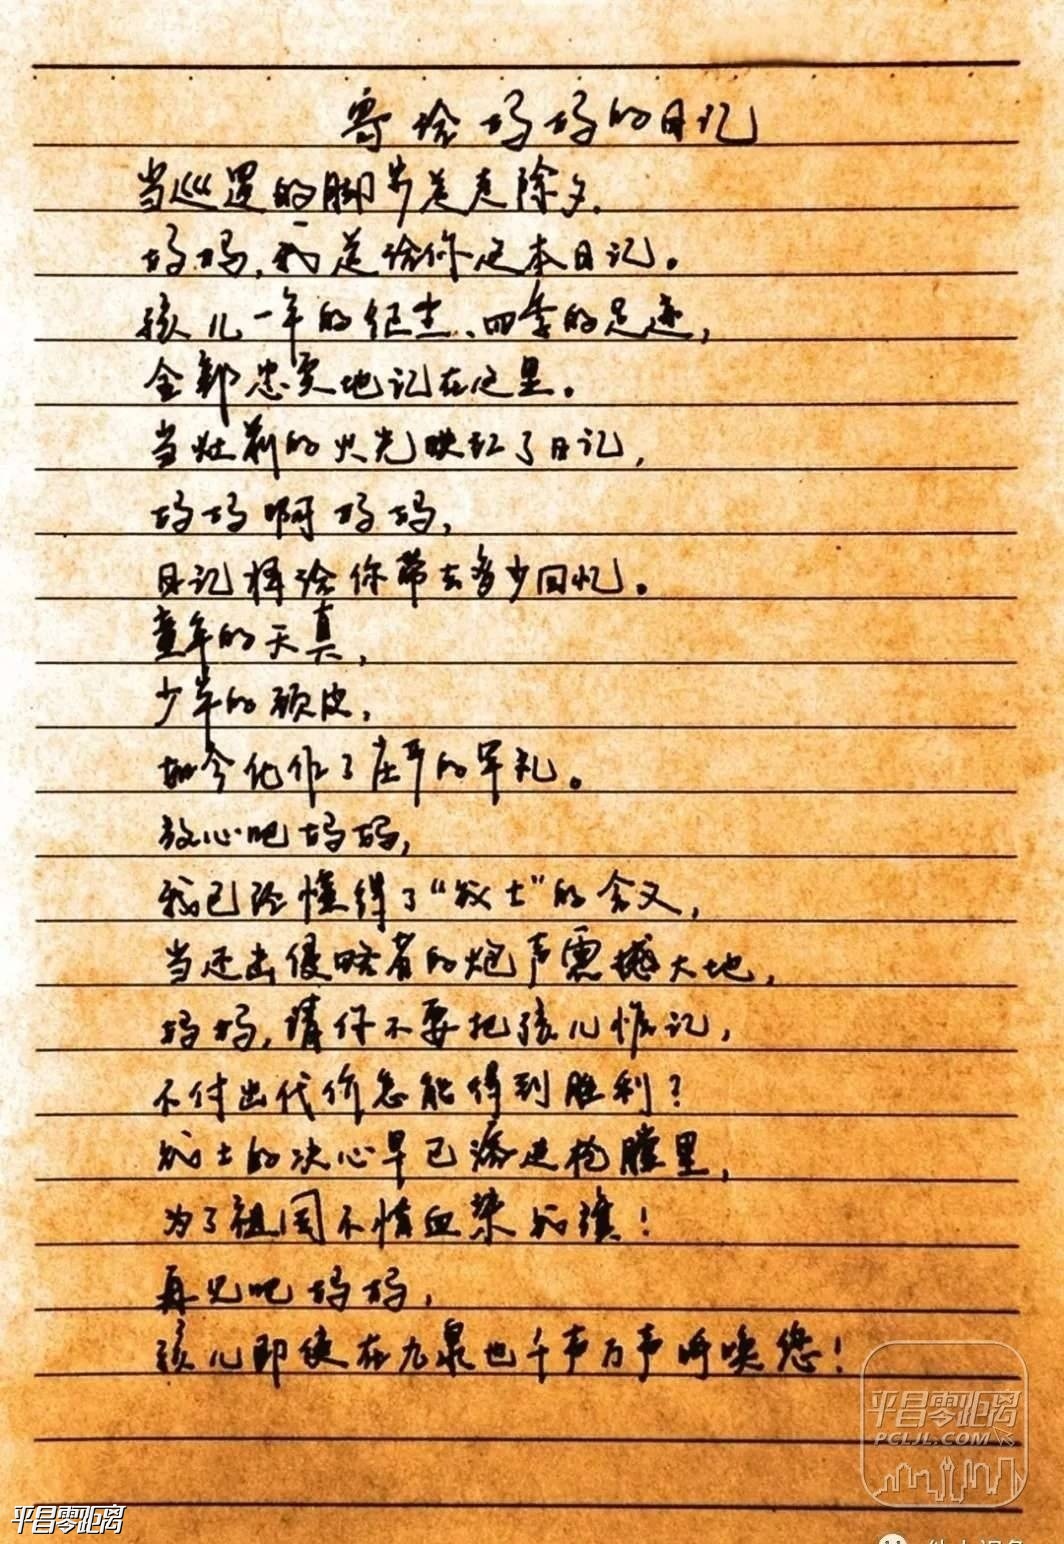 寄给妈妈的日记
当巡逻的脚步走进除夕,
妈妈,我送给你这本日记。
孩儿一年的征尘、四季的足迹,
全部忠实地记在这里。
当灶前的火光映红了日记,
妈妈啊妈妈,
日记将给你带去多少回忆。
童年的天真,
少年的顽皮,
如今化作了庄严的军礼。
放心吧妈妈,
我已经懂得了“战士”的含义,
当还击侵略者的炮声震撼大地,
妈妈,请你不要把孩儿惦记,
不付出代价怎能得到胜利?
战士的决心早已溶进枪膛里,
为了祖国不惜血染战旗!
再见吧妈妈,
孩儿即使在九泉也千声万声呼唤您!
平昌零距离
PCLJL.COM
平昌零距离